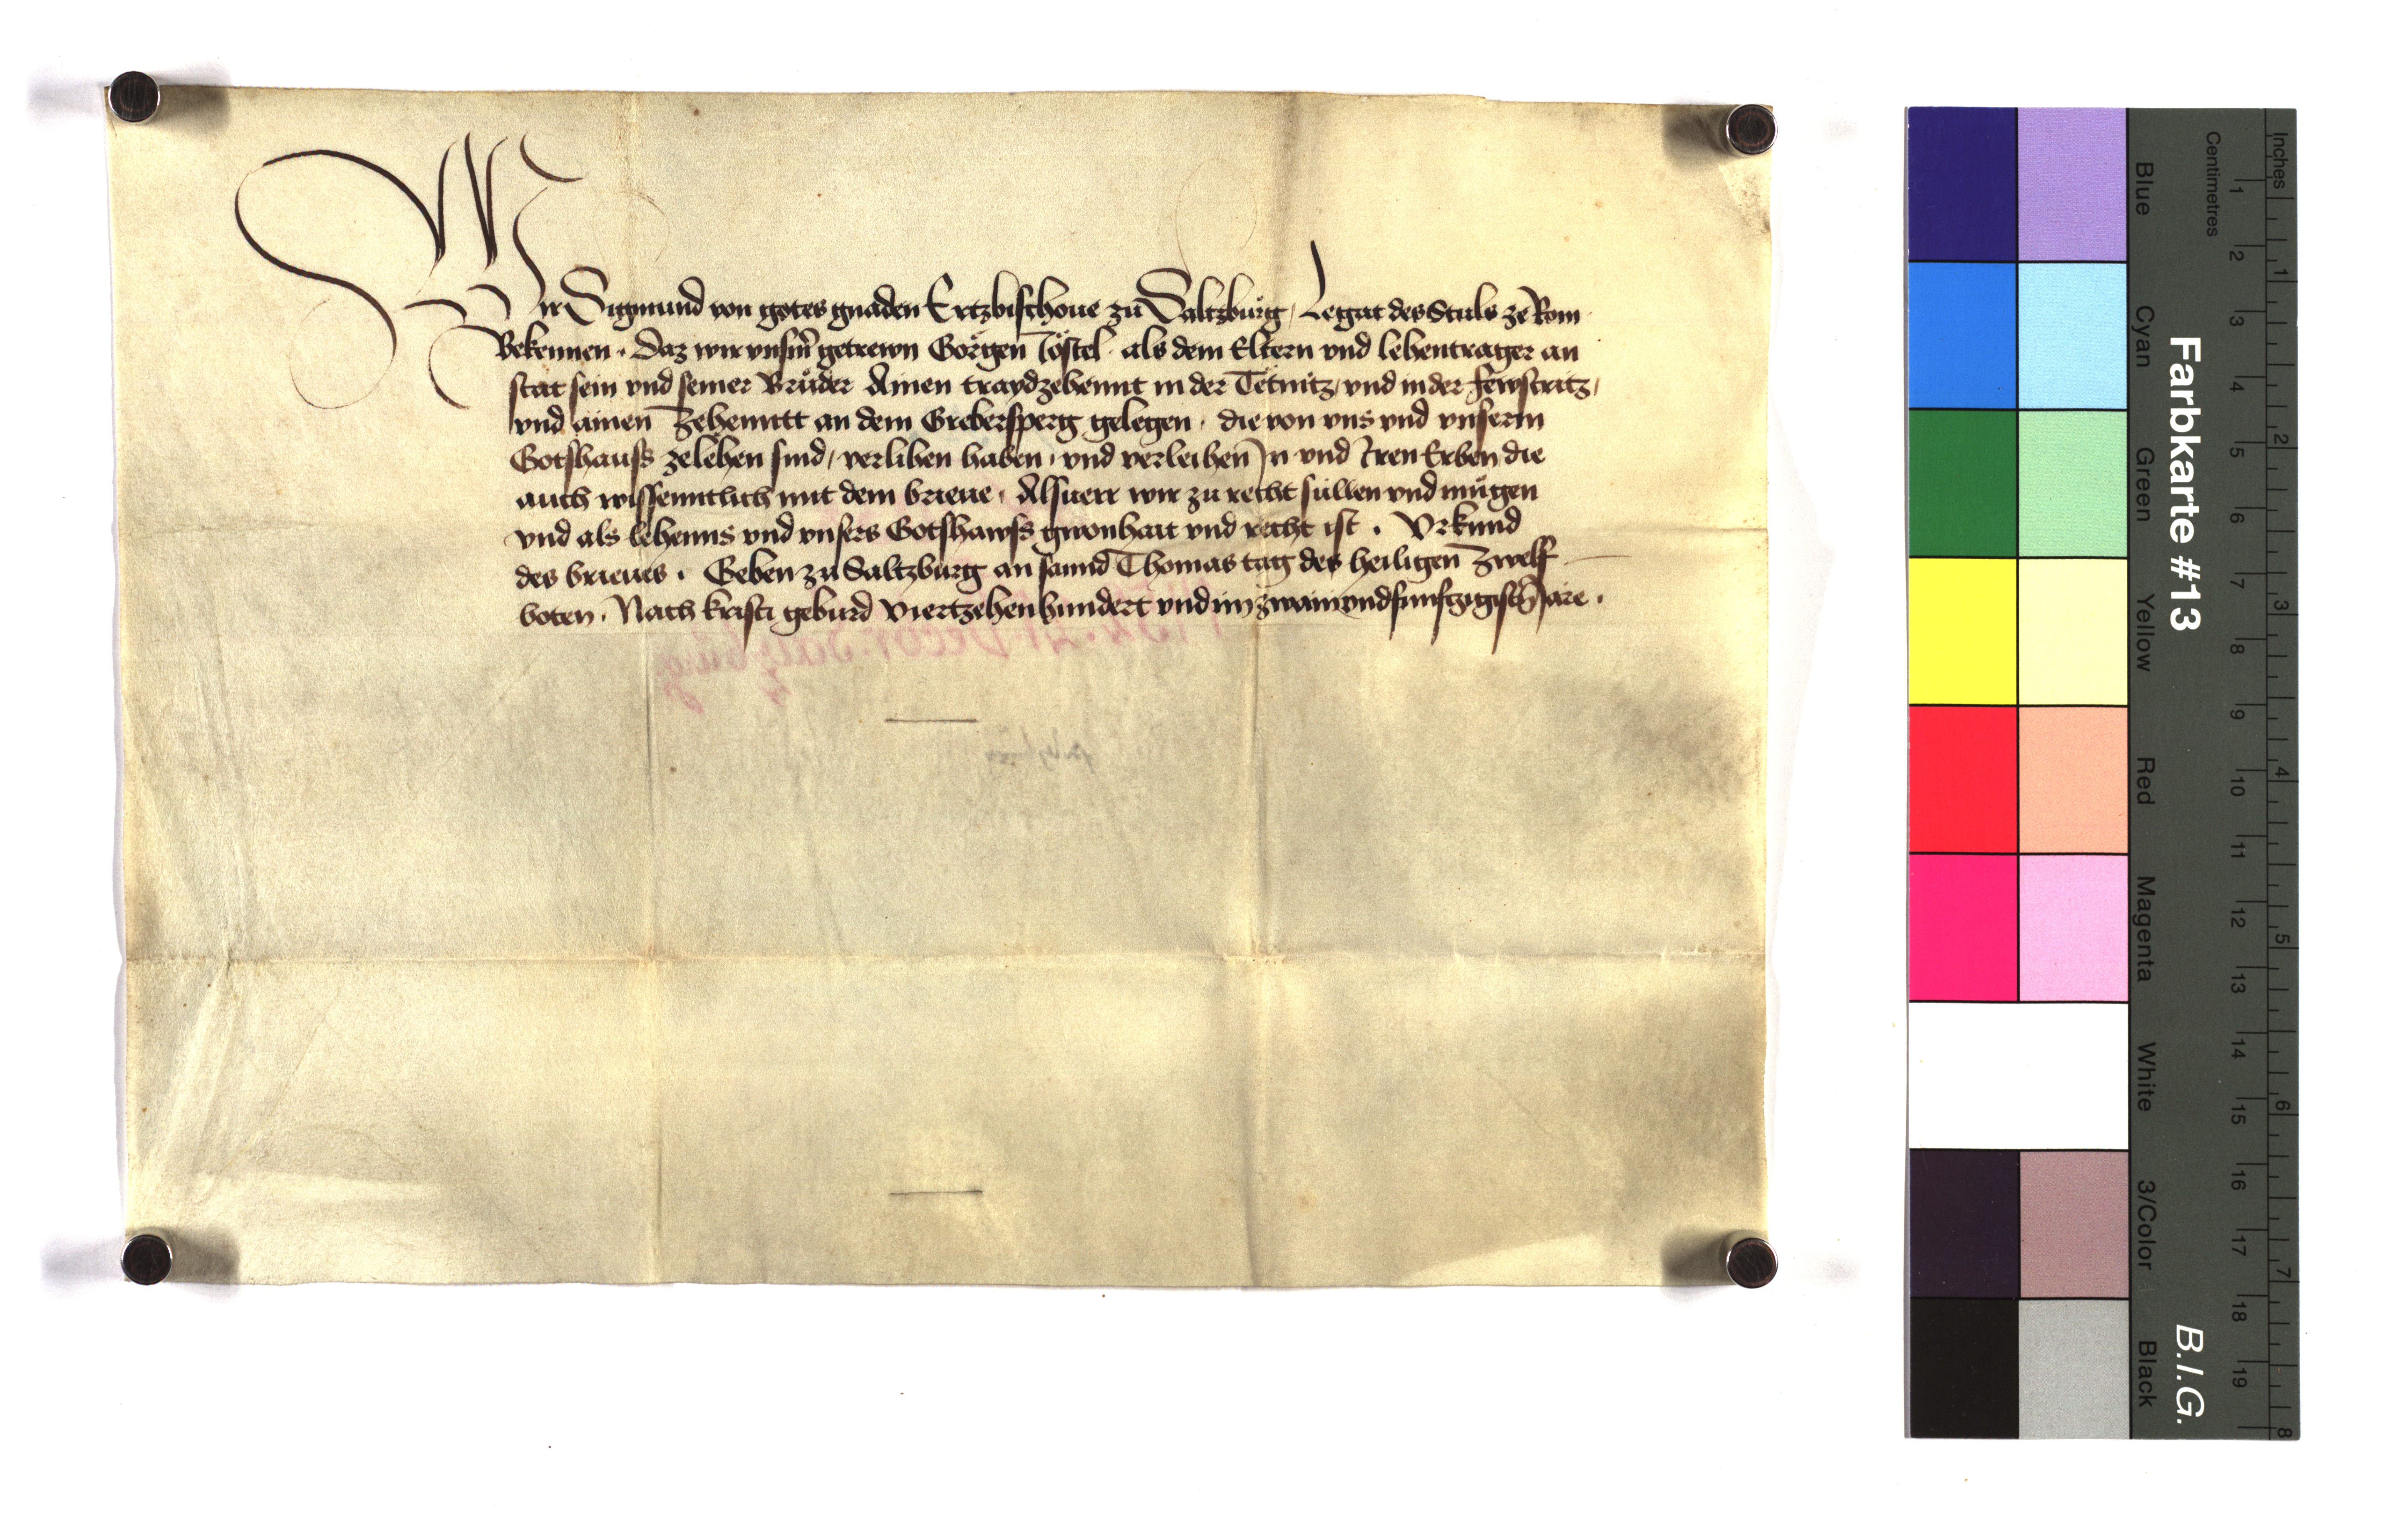 Wir Sigmund von gotes gnaden Ertzbischoue zu Saltzburg, Legat des Stuls ze Rom
Bekennen. Daz wir vnserm̄ getrewn Görgen Töstel als dem Eltern vnd lehentrager an
stat sein vnd seiner Brůder Ainen traydzehennt in der Tetnitz, vnd in der fewstritz,
vnd ainen Zehenntt an dem Grebersperg gelegen. die von vns vnd vnserm
Gotshauss zelehen sind, verlihen haben, vnd verleihen In vnd Iren Erben die
auch wissenntlich mit dem brieue. Alsuerr wir zu recht süllen vnd mügen
vnd als lehenns vnd vnsers Gotshawss gwonhait vnd recht ist. Vrkund
des brieues. Geben zu Saltzburg an sannd Thomas tag des heiligen Zwelf
boten. Nach kristi geburd Viertzehenhundert vnd im zwaiundfunfczigisth̄ Jare.
Farbkarte #13
B.I.G.
Inches
1 2 3 4 5 6 7 8
Centimetres
1 2 3 4 5 6 7 8 9 10 11 12 13 14 15 16 17 18 19
Blue
Cyan
Green
Yellow
Red
Magenta
White
3/Color
Black